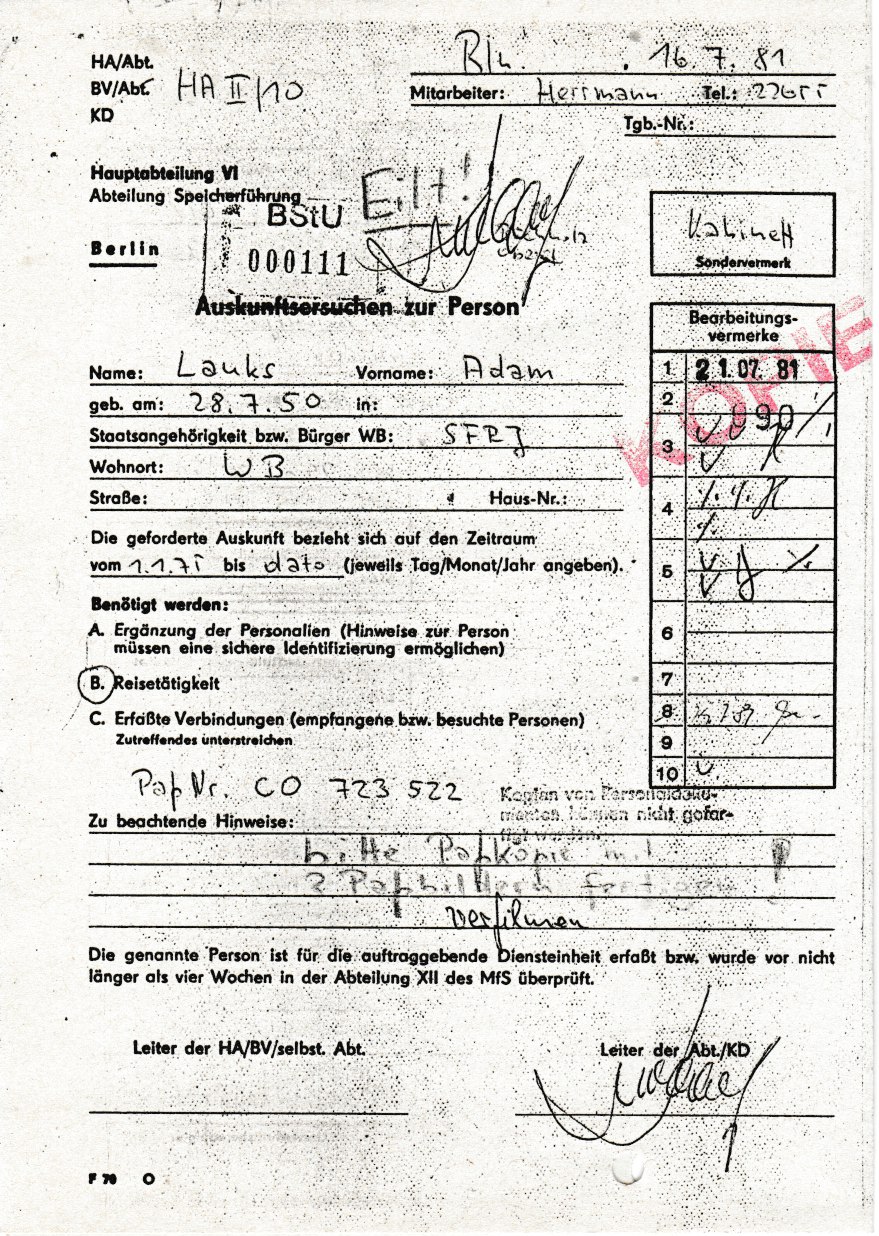 HA/Abt.
BV/Abt. HA II/10
KD
Bln. , 16.7.81
Mitarbeiter: Herrmann Tel.:
Tgb.-Nr.:
Hauptabteilung VI
Abteilung Speicherführung
Eilt!
BStU
000111
Berlin
Kabinett
Sondervermerk
Auskunftsersuchen zur Person
KOPIE
Bearbeitungs-
vermerke
Name: Lauks Vorname: Adam
geb. am: 28.7.50 in:
Staatsangehörigkeit bzw. Bürger WB: SFRJ
Wohnort: WB
Straße: Haus-Nr.:
Die geforderte Auskunft bezieht sich auf den Zeitraum
vom 1.1.75 bis dato (jeweils Tag/Monat/Jahr angeben).
Benötigt werden:
A. Ergänzung der Personalien (Hinweise zur Person
müssen eine sichere Identifizierung ermöglichen)
B. Reisetätigkeit
C. Erfaßte Verbindungen (empfangene bzw. besuchte Personen)
Zutreffendes unterstreichen
1 21.07.81
2
3
4
5
6
7
8
9
10
Paß Nr. CO 723 522
Kopien von Personaldoku-
menten können nicht gefer-
tigt werden!
Zu beachtende Hinweise:
bitte Paßkopie mit
2 Paßbildern fertigen!
verfilmen
Die genannte Person ist für die auftraggebende Diensteinheit erfaßt bzw. wurde vor nicht
länger als vier Wochen in der Abteilung XII des MfS überprüft.
Leiter der HA/BV/selbst. Abt. Leiter der Abt./KD
F 70 O